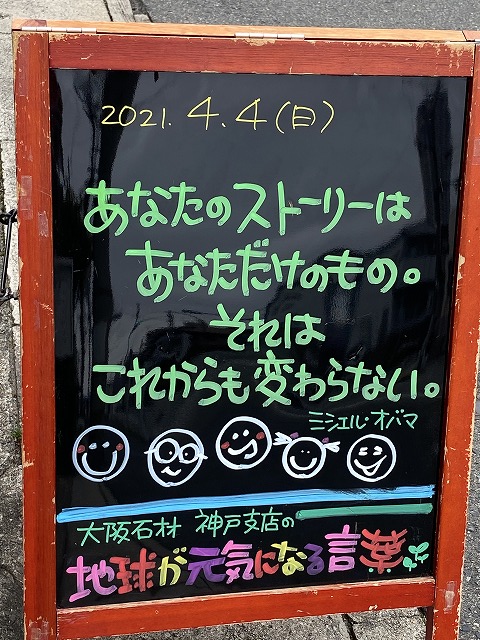 2021. 4. 4 (日)
あなたのストーリーは
あなただけのもの。
それは
これからも変わらない。
ミシェル・オバマ
大阪石材 神戸支店の
地球が元気になる言葉